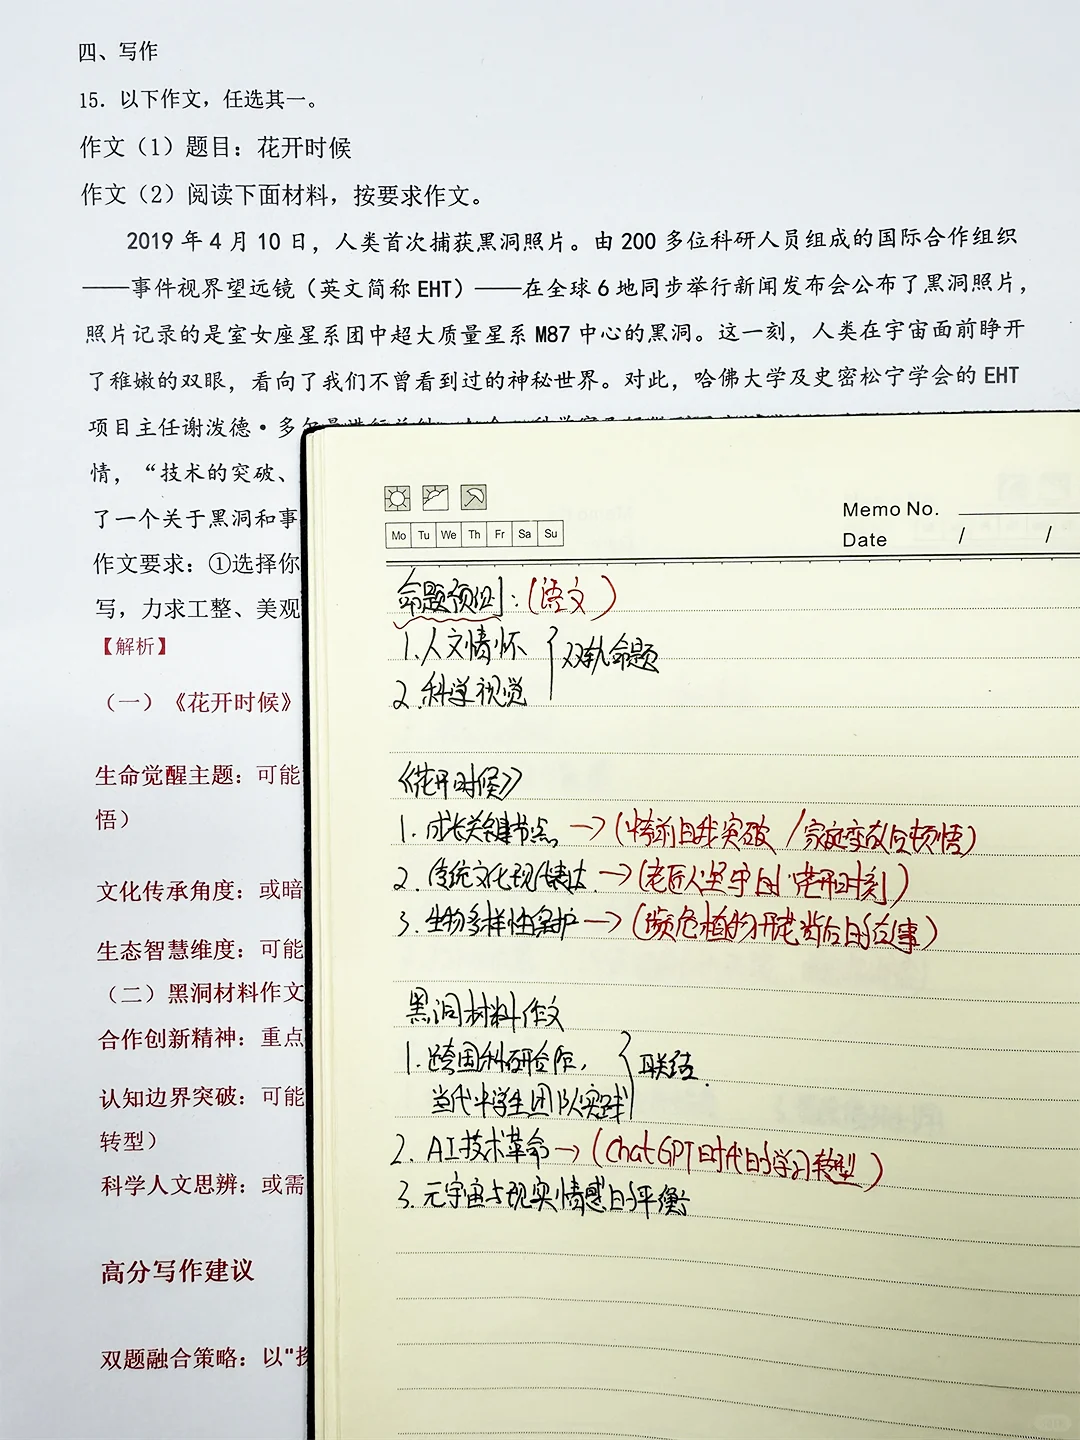 四、写作
15．以下作文，任选其一。
作文（1）题目：花开时候
作文（2）阅读下面材料，按要求作文。
2019 年 4 月 10 日，人类首次捕获黑洞照片。由 200 多位科研人员组成的国际合作组织
——事件视界望远镜（英文简称 EHT）——在全球 6 地同步举行新闻发布会公布了黑洞照片，
照片记录的是室女座星系团中超大质量星系 M87 中心的黑洞。这一刻，人类在宇宙面前睁开
了稚嫩的双眼，看向了我们不曾看到过的神秘世界。对此，哈佛大学及史密松宁学会的 EHT
项目主任谢泼德·多
情，“技术的突破、
了一个关于黑洞和事
作文要求：①选择你
写，力求工整、美观
【解析】
（一）《花开时候》
生命觉醒主题：可能
悟）
文化传承角度：或暗
生态智慧维度：可能
（二）黑洞材料作文
合作创新精神：重点
认知边界突破：可能
转型）
科学人文思辨：或需
高分写作建议
双题融合策略：以"
Memo No.
Mo Tu We Th Fr Sa Su
Date / /
命题预测：（语文）
1.人文情怀
双轨命题
2.科学视觉
《花开时候》
1.成长关键节点 →（烤前自我突破/家庭变故后顿悟）
2.传统文化现代表达 →（老匠人坚守的'花开时刻）
3.生物多样性保护 →（濒危植物开花背后的故事）
黑洞材料作文
1.跨国科研合作，
联结.
当代中学生团队实践
2. AI技术革命 →（ChatGPT时代的学习转型）
3.元宇宙与现实情感的平衡